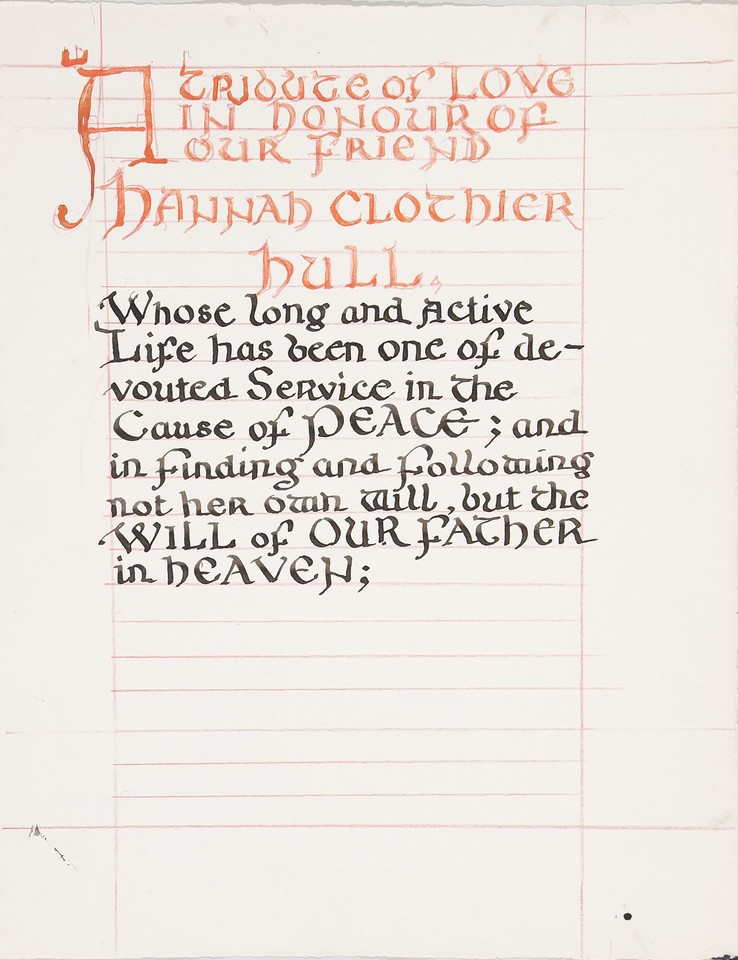 A TRIBUTE of LOVE
IN HONOUR OF
OUR FRIEND
HANNAH CLOTHIER
HULL,
Whose long and Active
Life has been one of de-
vouted Service in the
Cause of PEACE; and
in finding and following
not her own will, but the
WILL of OUR FATHER
in HEAVEN;